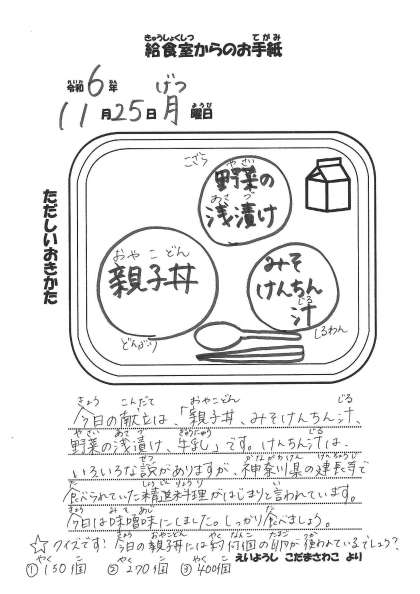 きゅうしょくしつ てがみ
給食室からのお手紙
れいわ ねん げつ
令和6年
11月25日月曜日
ようび
ただしいおきかた
こざら
やさい
野菜の
あさづ
浅漬け
おやこどん
親子丼
どんぶり
みそ
けんちん
じる
汁
しるわん
きょう こんだて おやこどん じる
今日の献立は、「親子丼、みそけんちん汁、
やさい あさづ ぎゅうにゅう じる
野菜の浅漬け、牛乳」です。けんちん汁は、
せつ かながわけん けんちょうじ
いろいろな説がありますが、神奈川県の建長寺で
た しょうじんりょうり い
食べられていた精進料理がはじまりと言われています。
きょう みそあじ た
今日は味噌味にしました。しっかり食べましょう。
きょう おやこどん やく なんこ たまご つか
☆クイズです!今日の親子丼には約何個の卵が使われているでしょう?
やく こ こ こ
①150個 ②270個 ③400個
えいようし こだまさわこ より